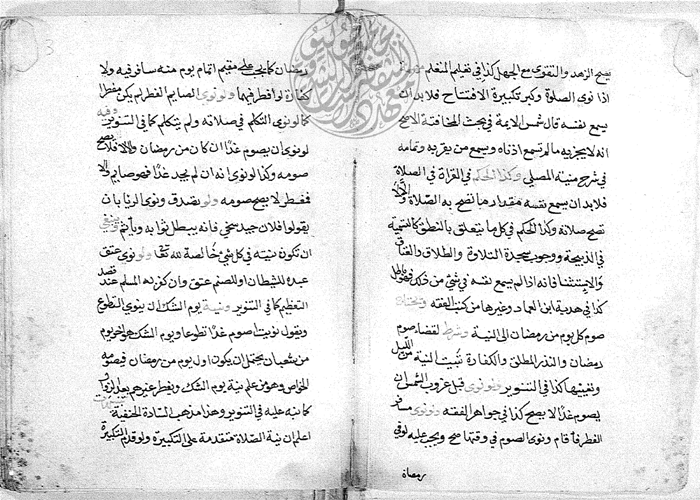 يصح الزهد والتقوى مع الجهل كذا في تعليم المتعلم
اذا نوى الصلاة وكبر تكبيرة الافتتاح فلا بد ان
يسمع نفسه قال شمس الايمة في بحث المخافتة الاصح
انه لا يجزيه ما لم تسمع اذناه ويسمع من يقربه وتمامه
في شرح منية المصلي وكذا الحكم في القراة في الصلاة
فلا بد ان يسمع نفسه مقدار ما تصح به الصلاة والا لا
تصح صلاته وكذا الحكم في كل ما يتعلق بالنطق كالتسمية
في الذبيحة ووجوب سجدة التلاوة والطلاق والعتاق
والاستثنا فانه اذا لم يسمع نفسه في شي من ذلك فهو باطل
كذا في هدية ابن العماد وغيرها من كتب الفقه ويحتاج
صوم كل يوم من رمضان الى النية وشرط لقضاء صوم
رمضان والنذر المطلق والكفارة تبييت النية من الليل
وتعيينها كذا في التنوير ولو نوى قبل غروب الشمس ان
يصوم غدا لا يصح كذا في جواهر الفقه ولو نوى مسافر
الفطر فأقام ونوى الصوم في وقتها صح ويجب عليه لو في
رمضان
رمضان كما يجب على مقيم اتمام يوم منه سافر فيه ولا
كفارة لو افطر فيهما ولو نوى الصايم الفطر لم يكن مفطرا
كما لو نوى التكلم في صلاته ولم يتكلم كما في التنوير وفيه
لو نوى ان يصوم غدا ان كان من رمضان والا فلا يصح
صومه وكذا لو نوى انه ان لم يجد غدا فهو صايم والا
فمفطر لا يصح صومه ولو تصدق ونوى الريا بان
يقولوا فلان جيد سخي فانه يبطل ثوابه ويأثم وينبغي
ان تكون نيته في كل شي خالصة لله تعالى ولو نوى عتق
عبده للشيطان او للصنم عتق وان كفر به المسلم عند قصد
التعظيم كما في التنوير ونية يوم الشك ان ينوي التطوع
ويقول نويت اصوم غدا تطوعا ويوم الشك هو اخر يوم
من شعبان يحتمل ان يكون اول يوم من رمضان فيصومه
الخواص وهو من علم نية يوم الشك ويفطر غيرهم بعد الزوال
كما نبه عليه في التنوير وهذا مذهب السادة الحنفية
اعلم ان نية الصلاة متقدمة على التكبيرة ولو قدم التكبيرة